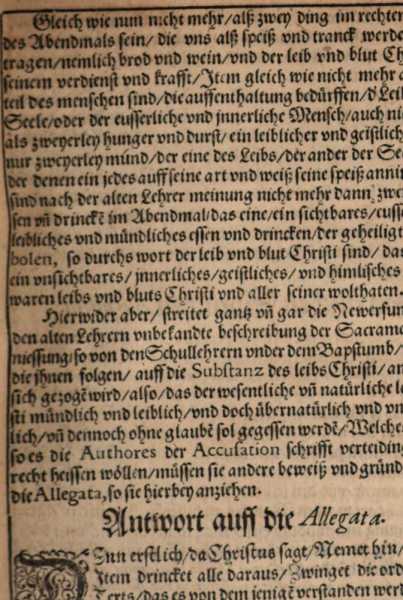 Gleich wie nun nicht mehr/ alß zwey ding im rechten
des Abendmals sein/ die vns alß speiß vnd tranck werde
tragen/ nemlich brod vnd wein/ vnd der leib vnd blut Ch
seinem verdienst vnd krafft/ Item gleich wie nicht mehr a
teil des menschen sind/ die auffenthaltung bedürffen/ d' Leib
Seele/ oder der eusserliche vnd jnnerliche Mensch/ auch ni
als zweyerley hunger vnd durst/ ein leiblicher vnd geistlich
nur zweyerley mund/ der eine des Leibs/ der ander der See
der denen ein jedes auff seine art vnd weiß seine speiß annim
sind nach der alten Lehrer meinung nicht mehr dann zwe
sen vñ drinckẽ im Abendmal/ das eine/ ein sichtbares/ euss
leibliches vnd mündliches essen vnd drincken/ der geheiligt
bolen, so durchs wort der leib vnd blut Christi sind/ da
ein vnsichtbares/ jnnerliches/ geistliches/ vnd himlisches
waren leibs vnd bluts Christi vnd aller seiner wolthaten.
Hierwider aber/ streitet gantz vñ gar die Newerfun
den alten Lehrern vnbekandte beschreibung der Sacrame
niessung/ so von den Schullehrern vnder dem Bapstumb/
die jhnen folgen/ auff die Substanz des leibs Christi/ an
sich gezogẽ wird/ also/ das der wesentliche vñ natürliche le
sti mündlich vnd leiblich/ vnd doch übernatürlich vnd vn
lich/ vñ dennoch ohne glaubẽ sol gegessen werdẽ/ Welche
so es die Authores der Accusation schrifft verteiding
recht heissen wöllen/ müssen sie andere beweiß vnd gründ
die Allegata, so sie hierbey anziehen.
Antwort auff die Allegata.
Dann erstlich/ da Christus sagt/ Nemet hin/
Item drincket alle daraus/ Zwinget die ord
Texts/ das es von dem jenigẽ verstanden werd